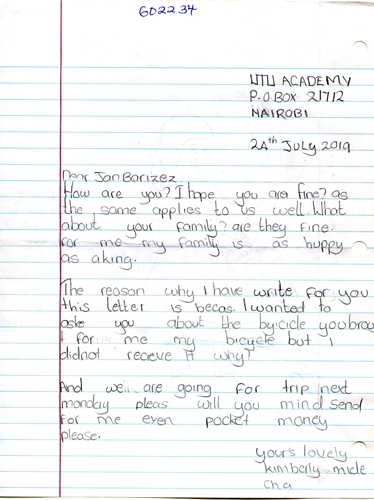 602234
UTU ACADEMY
P.O.BOX 21712
NAIROBI
24th JULY 2019
Dear Jan Barizez
How are you? I hope you are fine? as
the same applies to us well. What
about your family? are they fine.
for me my family is as huppy
as aking.
The reason why I have write for you
this letter is becas. I wanted to
aske you about the bycicle you brow
t for me my bicycle but I
didnot recieve it why?
And we are going for trip next
monday pleas will you mind send
for me even pocket money
please.
your's lovely
kimberly micle
cha